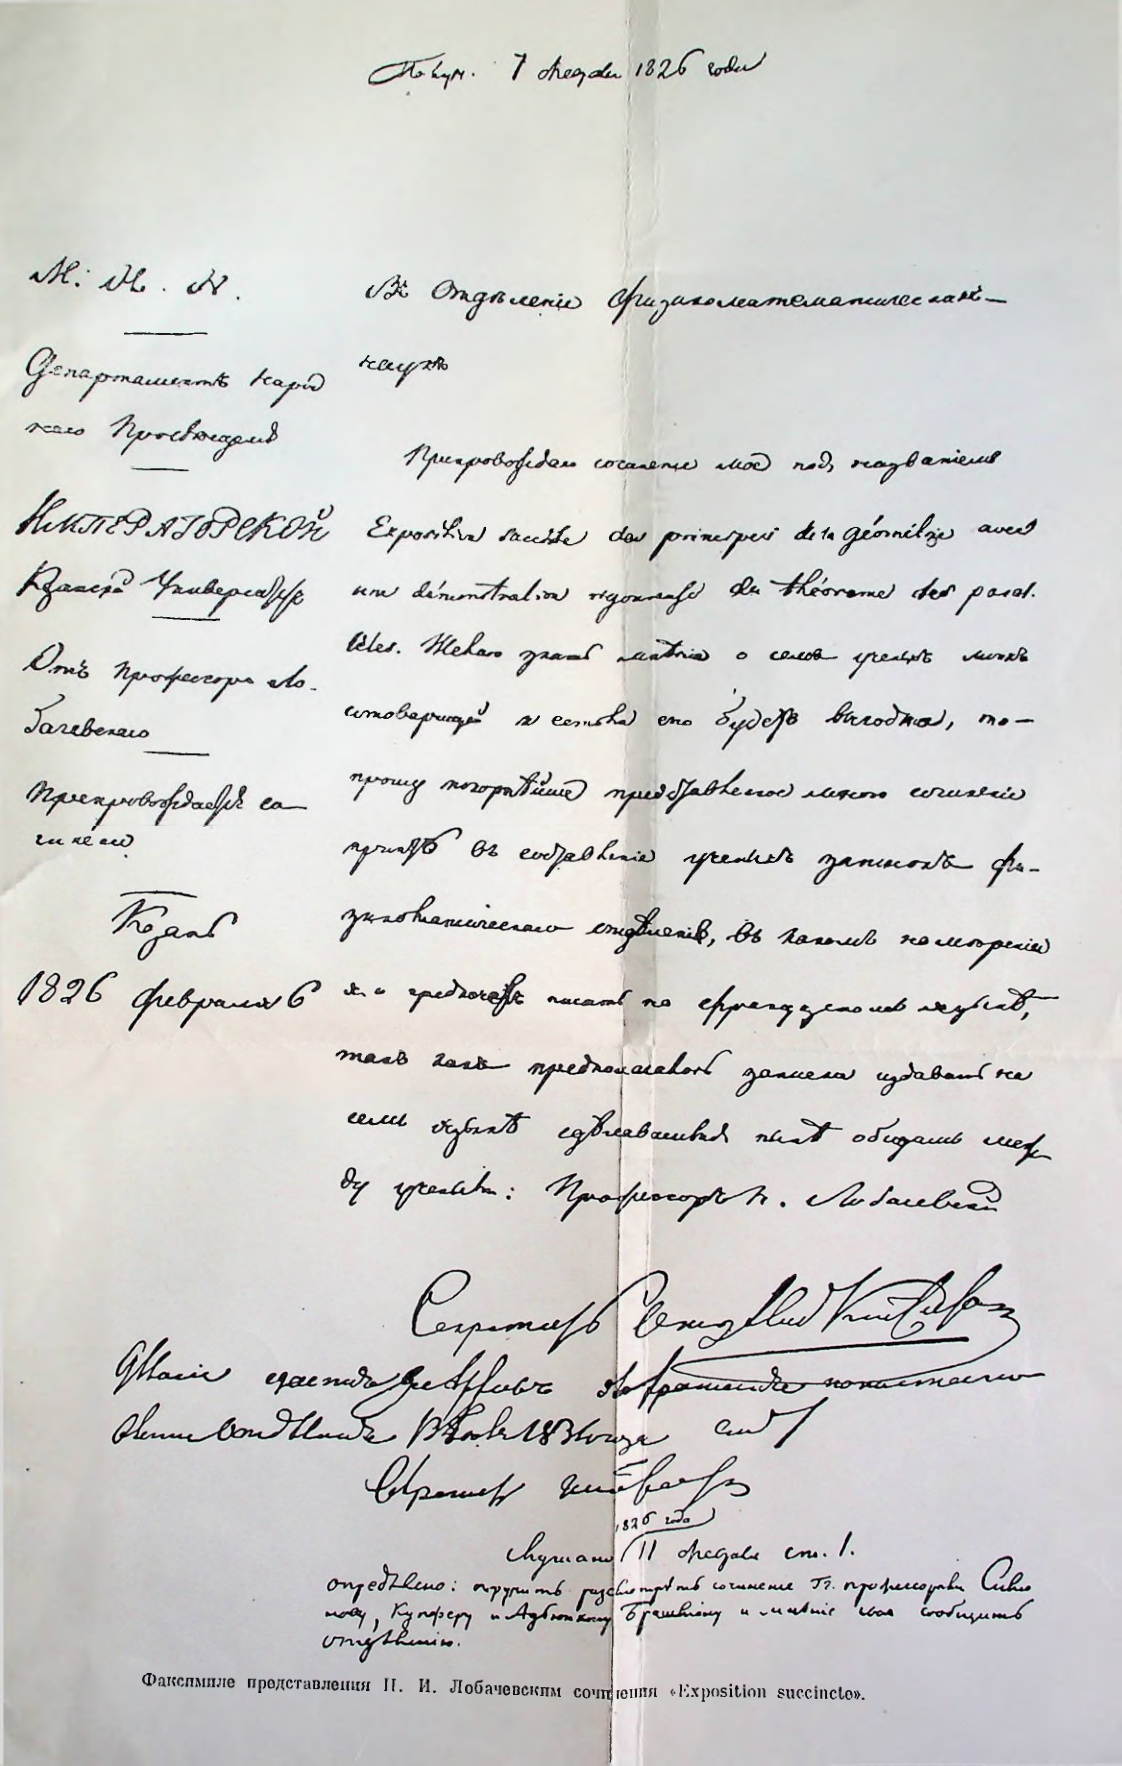 Получ. 7 февраля 1826 года
М. Н. П.
Департаментъ народ
наго Просвѣщенія
ИМПЕРАТОРСКОЙ
Казанскій Университетъ
Отъ профессора Ло-
бачевскаго
Препровождается со-
чиненіе
Казань
1826 февраля 6
Въ Отдѣленіе физикоматематическихъ
наукъ
Препровождаю сочиненіе мое подъ названіемъ
Exposition succincte des principes de la géométrie avec
une démonstration rigoureuse du théorème des paral-
lèles. Желаю знать мнѣніе о семъ ученыхъ моихъ
сотоварищей и естьли оно будетъ выгодно, то-
прошу покорнѣйше представленное мною сочиненіе
принять въ составленіе ученыхъ записокъ фи-
зикоматическаго отдѣленія, въ какомъ намѣреніи
я и предпочелъ писать на французскомъ языкѣ,
такъ какъ предполагалось записки издавать на
семъ языкѣ сдѣлавшимся нынѣ общимъ меж-
ду учеными: Профессоръ Н. Лобачевскій
Секретарь
отдѣленія 1834 года
Секретарь
1826 года
Слушано 11 февраля ст. 1.
опредѣлено: поручить разсмотрѣть сочиненіе Гг. профессорамъ Симо
нову, Купферу и Адъюнкту Брашману и мнѣніе свое сообщить
отдѣленію.
Факсимиле представления Н. И. Лобачевским сочинения «Exposition succincte».